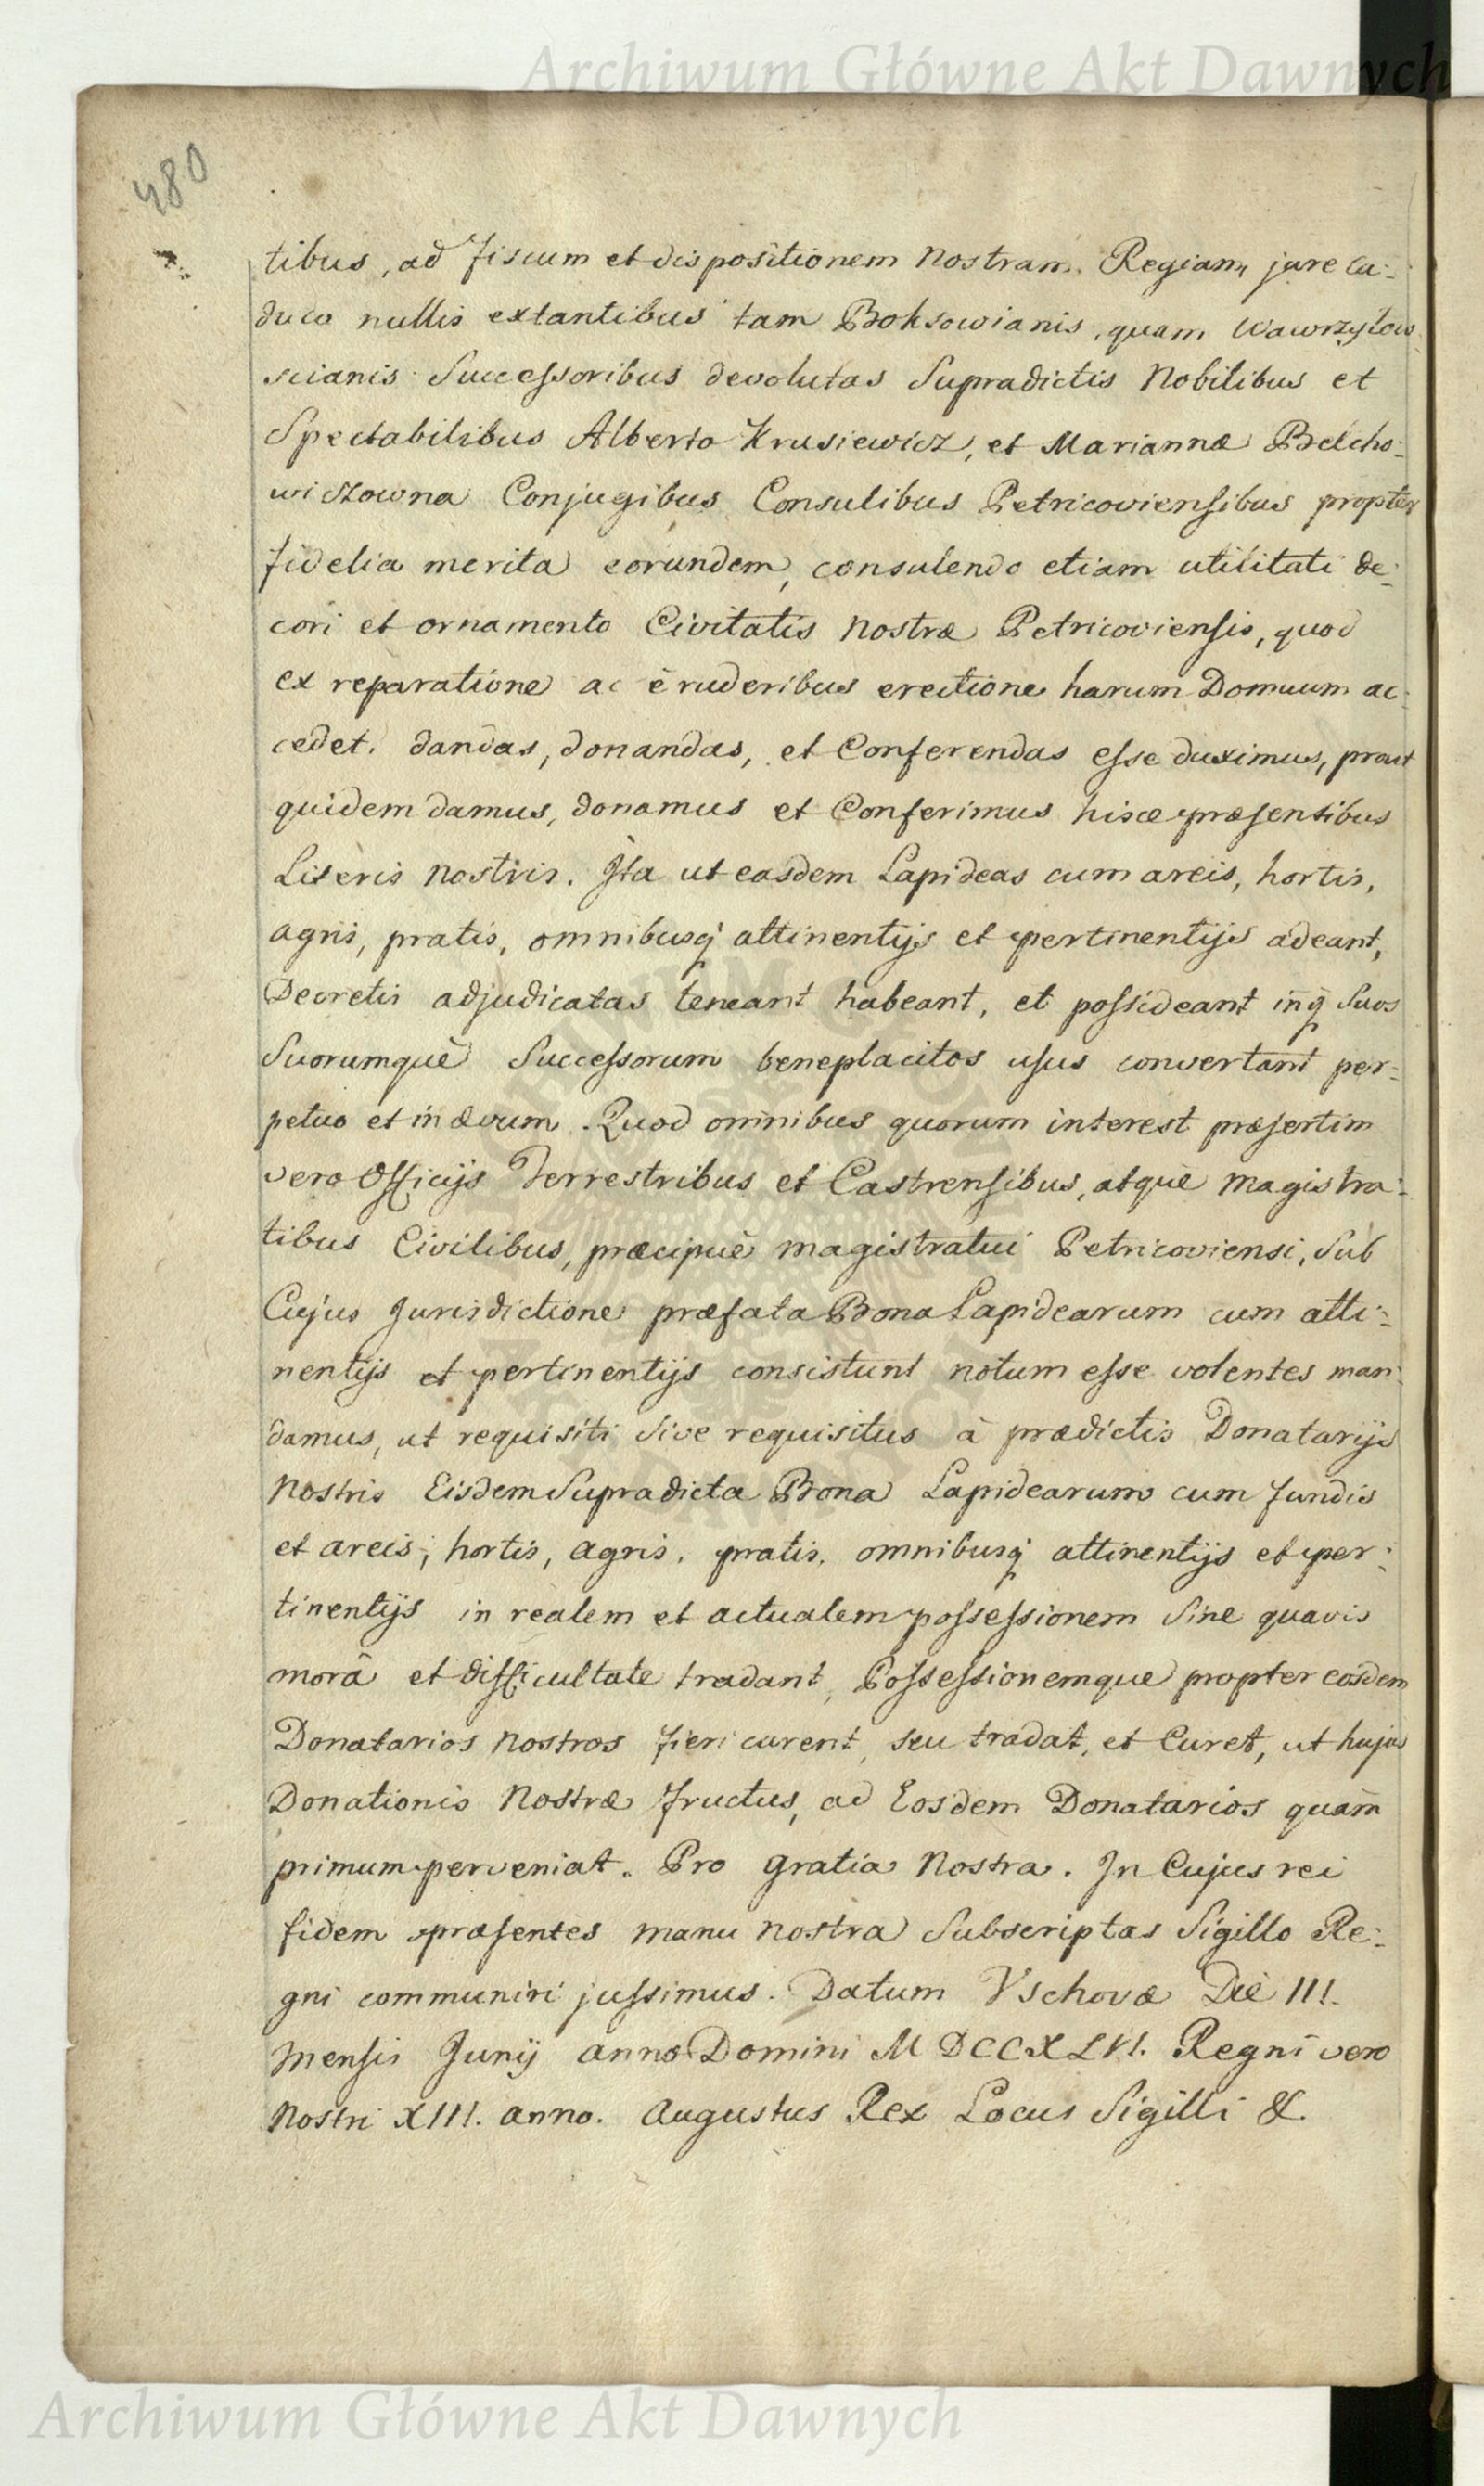 Archiwum Główne Akt Dawnych
480
tibus, ad fiscum et dispositionem Nostram Regiam, jure ca:
duco nullis extantibus tam Boksowianis, quam Wawrzytow
scianis Successoribus devolutas Supradictis Nobilibus et
Spectabilibus Alberto Krusiewicz, et Mariannæ Belcho:
wiczowna Conjugibus Consulibus Petricoviensibus propter
fidelia merita eorundem, consulendo etiam utilitati de:
cori et ornamento Civitatis Nostræ Petricoviensis, quod
ex reparatione ac è ruderibus erectione harum Domuum ac:
cedet. dandas, donandas, et Conferendas esse duximus, prout
quidem damus, donamus et Conferimus hisce præsentibus
Literis Nostris. Ita ut easdem Lapideas cum areis, hortis,
agris, pratis, omnibusq́ attinentijs et pertinentijs adeant,
Decretis adjudicatas teneant habeant, et possideant inq́ Suos
Suorumquè Successorum beneplacitos usus convertant per:
petuo et in ævum. Quod omnibus quorum interest præsertim
vero Officijs Terrestribus et Castrensibus, atquè Magistra:
tibus Civilibus, præcipuè Magistratui Petricoviensi, Sub
Cujus Jurisdictione præfata Bona Lapidearum cum atti:
nentijs et pertinentijs consistunt notum esse volentes man:
damus, ut requisiti Sive requisitus à prædictis Donatarijs
Nostris Eisdem Supradicta Bona Lapidearum cum fundis
et areis, hortis, agris, pratis, omnibusq́ attinentijs et per:
tinentijs in realem et actualem possessionem Sine quavis
morâ et difficultate tradant, Possessionemque propter eosdem
Donatarios Nostros fieri curent, seu tradat, et Curet, ut hujus
Donationis Nostræ fructus, ad Eosdem Donatarios quàm
primum perveniat. Pro gratia Nostra. In Cujus rei
fidem præsentes manu nostra Subscriptas Sigillo Re:
gni communiri jussimus. Datum Vschovæ Die III.
Mensis Junij anno Domini MDCCXLVI. Regni vero
Nostri XIII. anno. Augustus Rex Locus Sigilli &.
Archiwum Główne Akt Dawnych